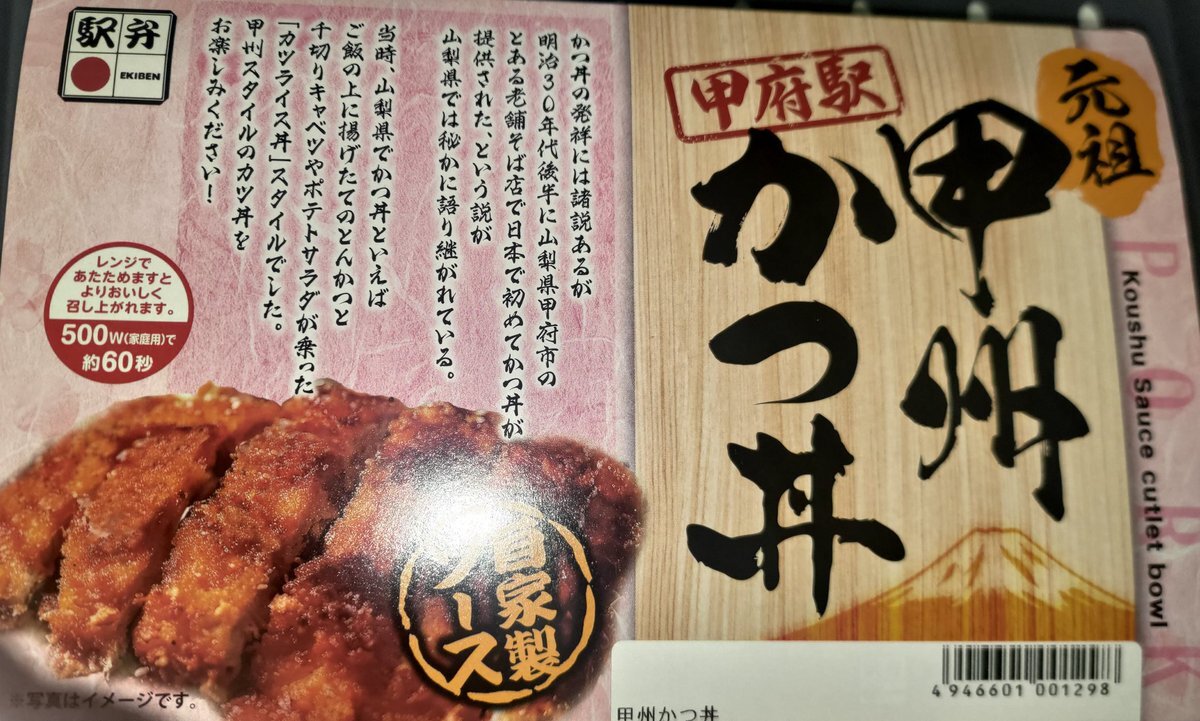 元祖
甲州
かつ丼
甲府駅
Koushu Sauce cutlet bowl
PORK
駅弁
EKIBEN
かつ丼の発祥には諸説あるが
明治30年代後半に山梨県甲府市の
とある老舗そば店で日本で初めてかつ丼が
提供された、という説が
山梨県では秘かに語り継がれている。
当時、山梨県でかつ丼といえば
ご飯の上に揚げたてのとんかつと
千切りキャベツやポテトサラダが乗った
「カツライス丼」スタイルでした。
甲州スタイルのカツ丼を
お楽しみください!
レンジで
あたためますと
よりおいしく
召し上がれます。
500W(家庭用)で
約60秒
自家製
ソース
※写真はイメージです。
4946601 001298
甲州かつ丼